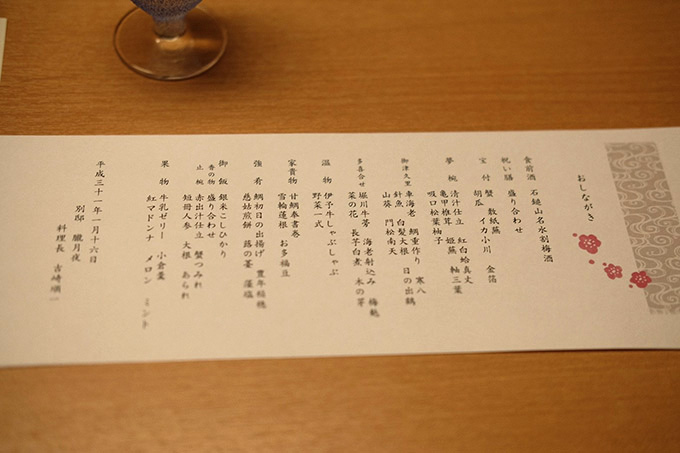 おしながき
食前酒 石鎚山名水割梅酒
祝い膳 盛り合わせ
宝付 蟹 敷紙蕪 金箔
胡瓜 イカ小川
夢椀 清汁仕立 紅白蛤真丈
亀甲椎茸 姫蕪 軸三葉
吸口松葉柚子
御津久里 車海老 鯛重作り 寒八
針魚 白髪大根 日の出鶴
山葵 門松南天
多喜合せ 堀川牛蒡 海老射込み 梅麩
菜の花 長芋白煮 木の芽
温物 伊予牛しゃぶしゃぶ
野菜一式
家貴物 甘鯛奉書巻
雪輪蓮根 お多福豆
強肴 鯛初日の出揚げ 豊年稲穂
慈姑煎餅 蕗の薹 藻塩
御飯 銀米こしひかり
香の物 盛り合わせ
止椀 赤出汁仕立 蟹つみれ
短冊人参 大根 あられ
果物 牛乳ゼリー 小倉羹
紅マドンナ メロン ミント
平成三十一年一月十六日
別邸 朧月夜
料理長 吉崎順一